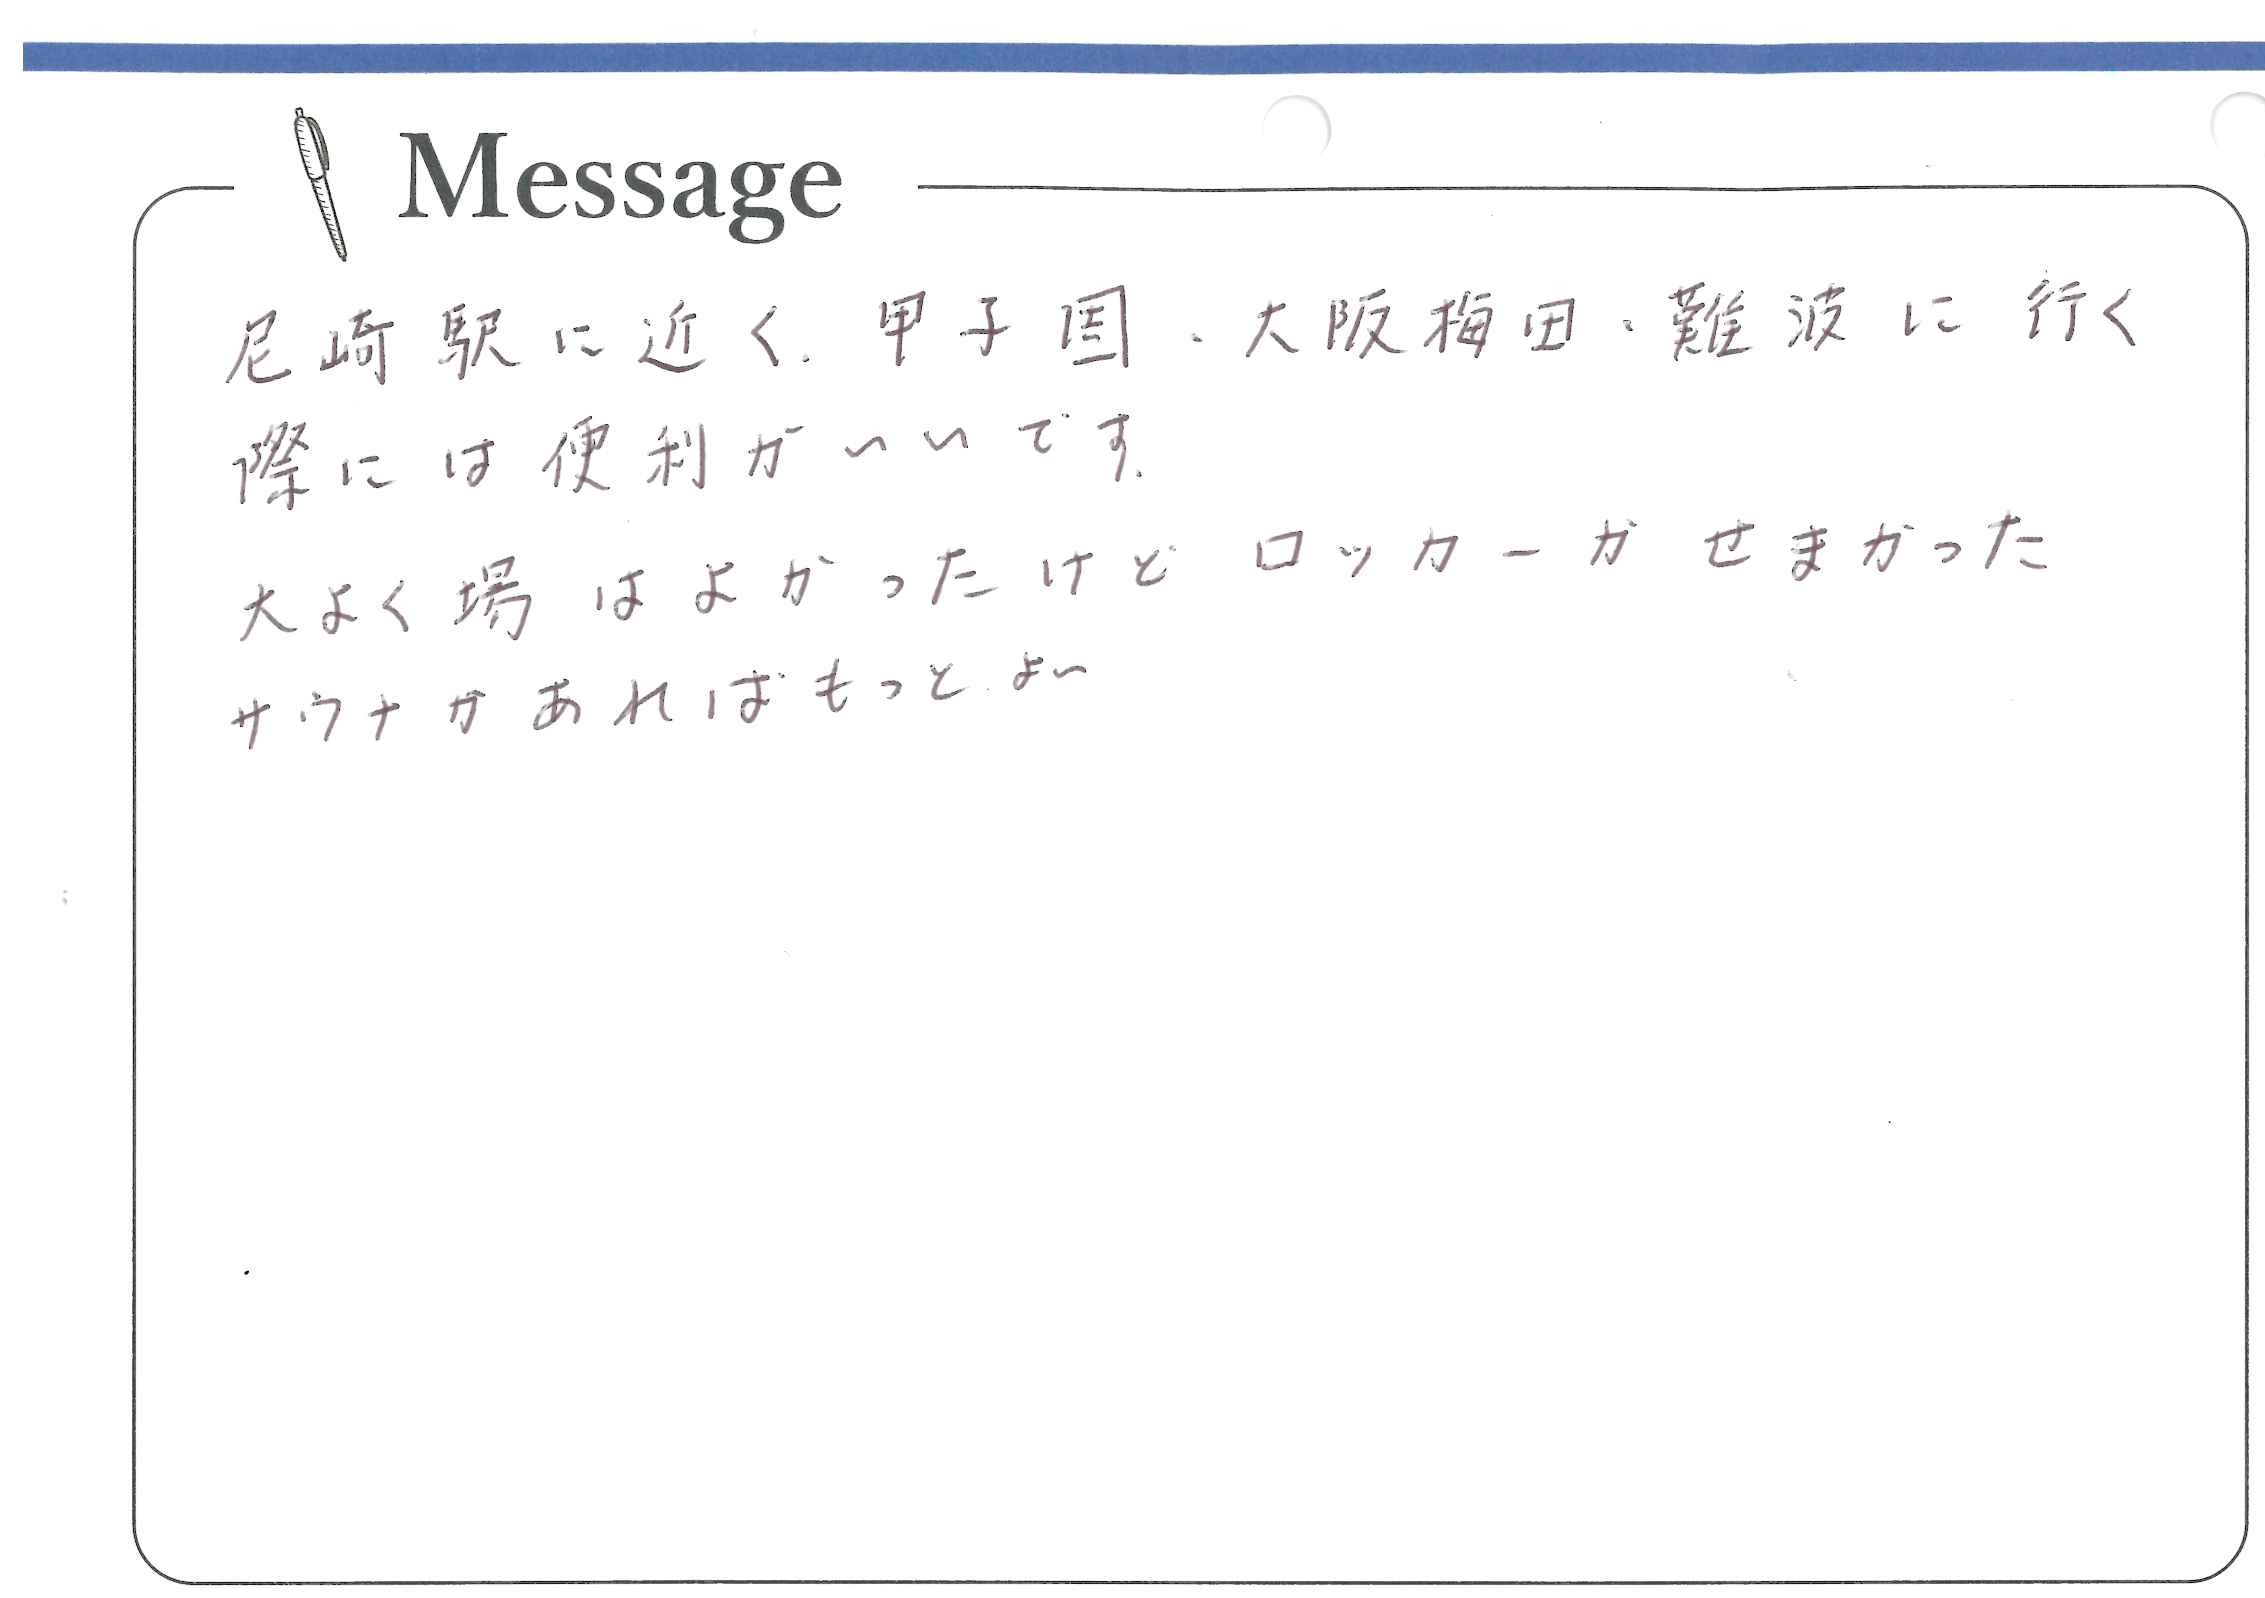 Message
尼崎駅に近く、甲子園、大阪梅田、難波に行く
際には便利がいいです。
大よく場はよかったけどロッカーがせまかった
サウナがあればもっとよい